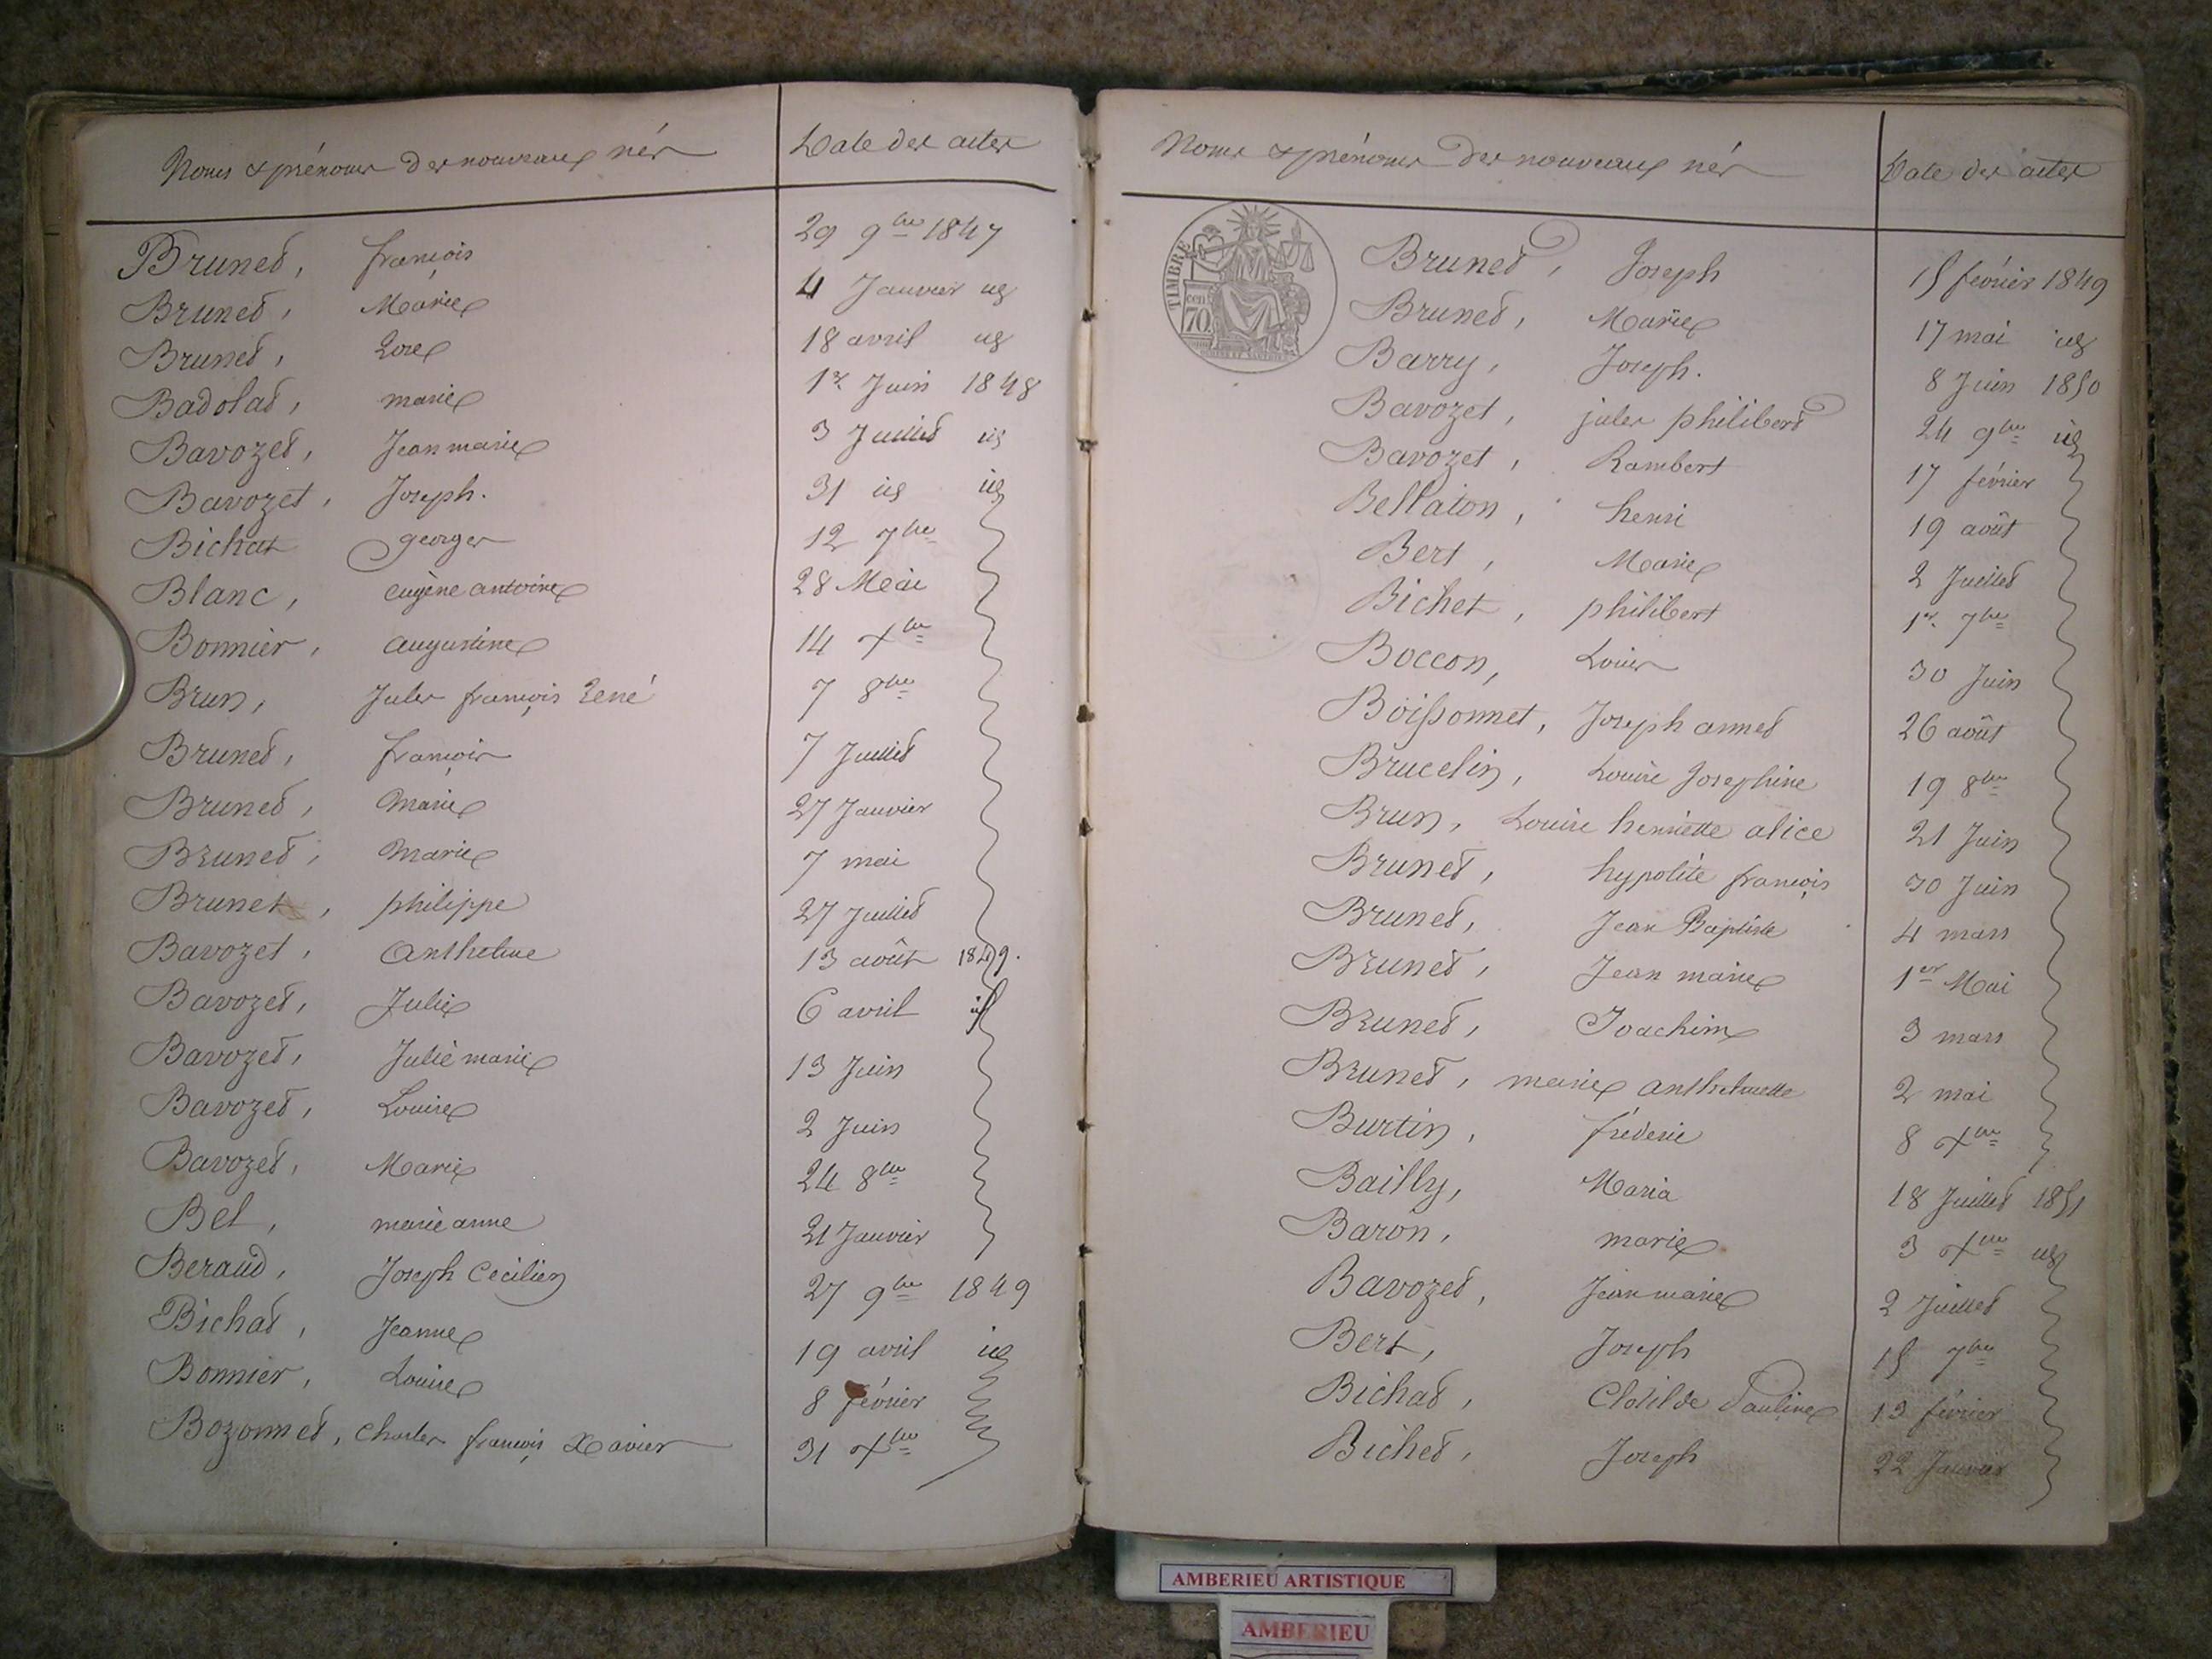 Noms & prénoms des nouveaux nés Date des actes
Brunet, françois 29 9bre 1847
Brunet, Marie 4 Janvier id
Brunet, Rose 18 avril id
Badolat, marie 1er Juin 1848
Bavozet, Jean marie 3 Juillet id
Bavozet, Joseph. 31 id id
Bichat georges 12 7bre
Blanc, eugène antoine 28 Mai
Bonnier, augustine 14 Xbre
Brun, Jules françois René 7 8bre
Brunet, françois 7 Juillet
Brunet, Marie 27 Janvier
Brunet, Marie 7 mai
Brunet, philippe 27 Juillet
Bavozet, Anthelme 13 août 1849.
Bavozet, Julie 6 avril id
Bavozet, Julie marie 13 Juin
Bavozet, Louise 2 Juin
Bavozet, Marie 24 8bre
Bel, marie anne 21 Janvier
Beraud, Joseph Cecilien 27 9bre 1849
Bichat, Jeanne 19 avril id
Bonnier, Louise 8 février
Bozonnet, Charles françois Xavier 31 Xbre
Noms & prénoms des nouveaux nés Date des actes
TIMBRE
70 cen
Brunet, Joseph 15 février 1849
Brunet, Marie 17 mai id
Barry, Joseph. 8 Juin 1850
Bavozet, jules philibert 24 9bre id
Bavozet, Rambert 17 février
Bellaton, henri 19 août
Bert, Marie 2 Juillet
Bichet, philibert 1er 7bre
Boccon, Louis 30 Juin
Boissonnet, Joseph annet 26 août
Brucelin, Louise Josephine 19 8bre
Brun, Louise henriette alice 21 Juin
Brunet, hypolite françois 30 Juin
Brunet, Jean Baptiste 4 mars
Brunet, Jean marie 1er Mai
Brunet, Joachim 3 mars
Brunet, marie anthelmette 2 mai
Burtin, fréderic 8 Xbre
Bailly, Maria 18 Juillet 1851
Baron, marie 3 Xbre id
Bavozet, Jean marie 2 Juillet
Bert, Joseph 15 7bre
Bichat, Clotilde Pauline 13 février
Bichet, Joseph 22 Janvier
AMBERIEU ARTISTIQUE
AMBERIEU